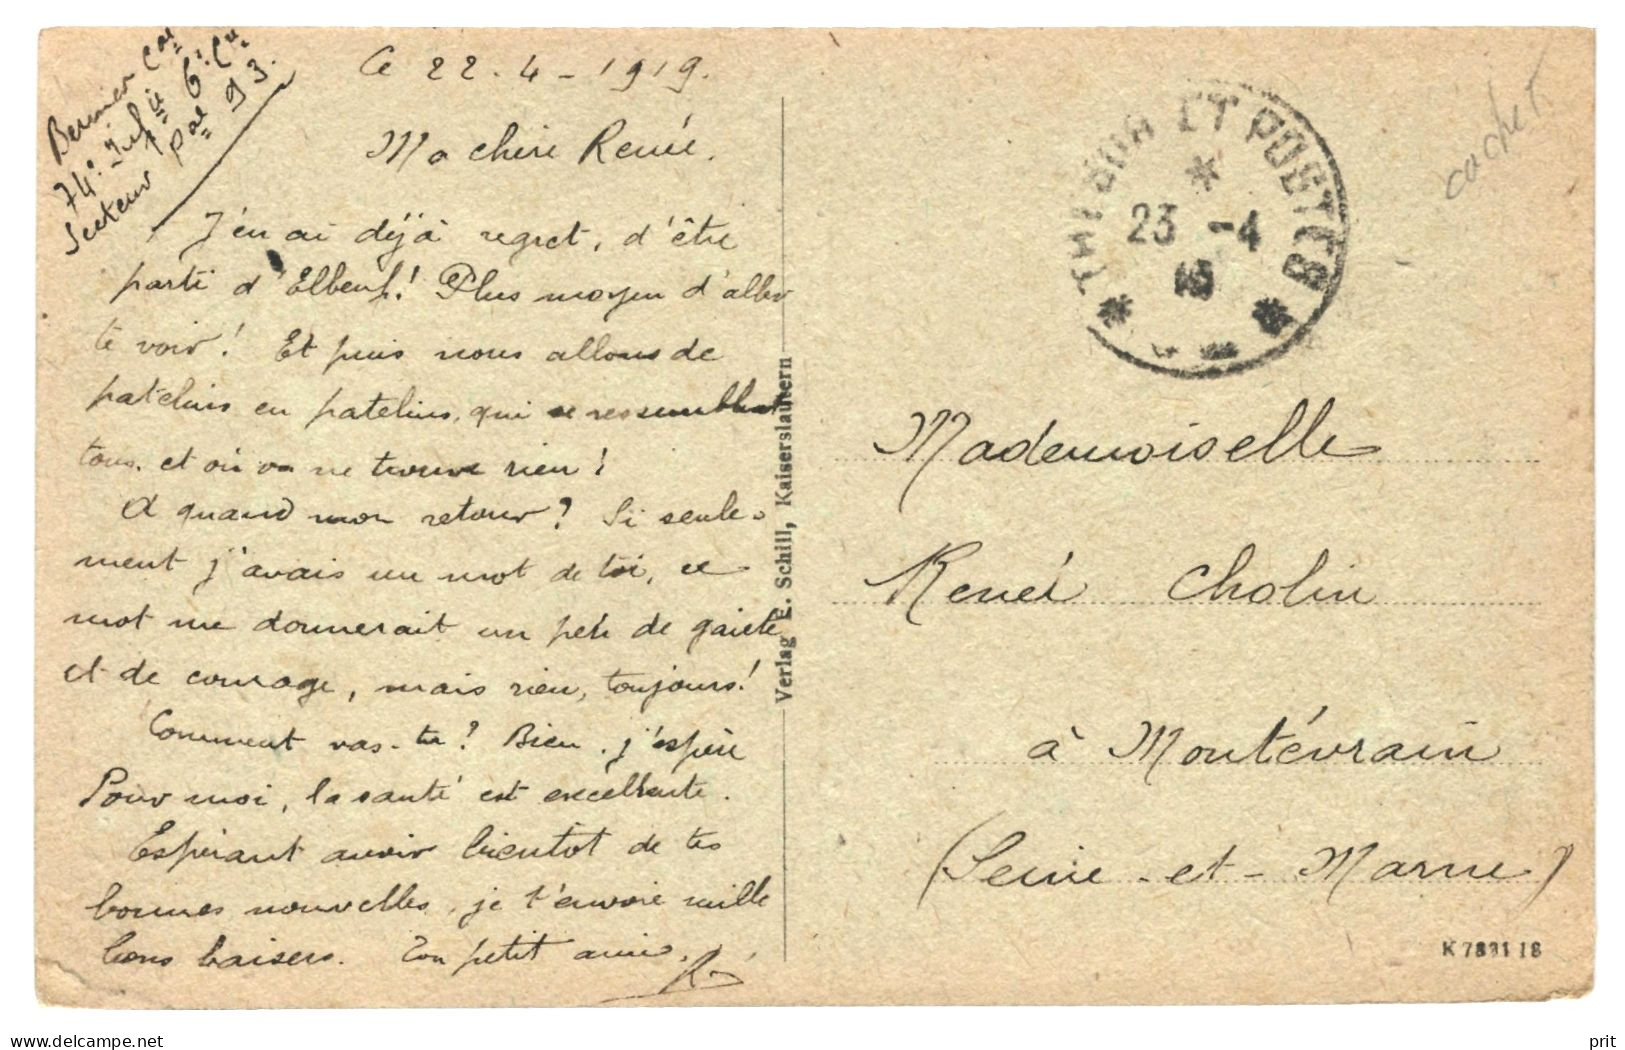 Bernier Cal
74e Inf ie 6e Cie
Secteur Pal 93.
Ce 22-4-1919.
Ma chère Renée.
J'en ai déjà regret, d'être
parti d'Elbeuf! Plus moyen d'aller
te voir! Et puis nous allons de
patelins en patelins, qui se ressemblent
tous, et où on ne trouve rien!
A quand mon retour? Si seule-
ment j'avais un mot de toi, ce
mot me donnerait un peu de gaieté
et de courage, mais rien, toujours!
Comment vas-tu? Bien, j'espère
Pour moi, la santé est excellente.
Espérant avoir bientôt de tes
bonnes nouvelles, je t'envoie mille
bons baisers. Ton petit ami.
Verlag E. Schill, Kaiserslautern
TRESOR ET POSTES
23 -4
cachet.
Mademoiselle
Renée Cholin
à Montévrain
(Seine-et-Marne)
K 7891 18
delcampe.net
prit